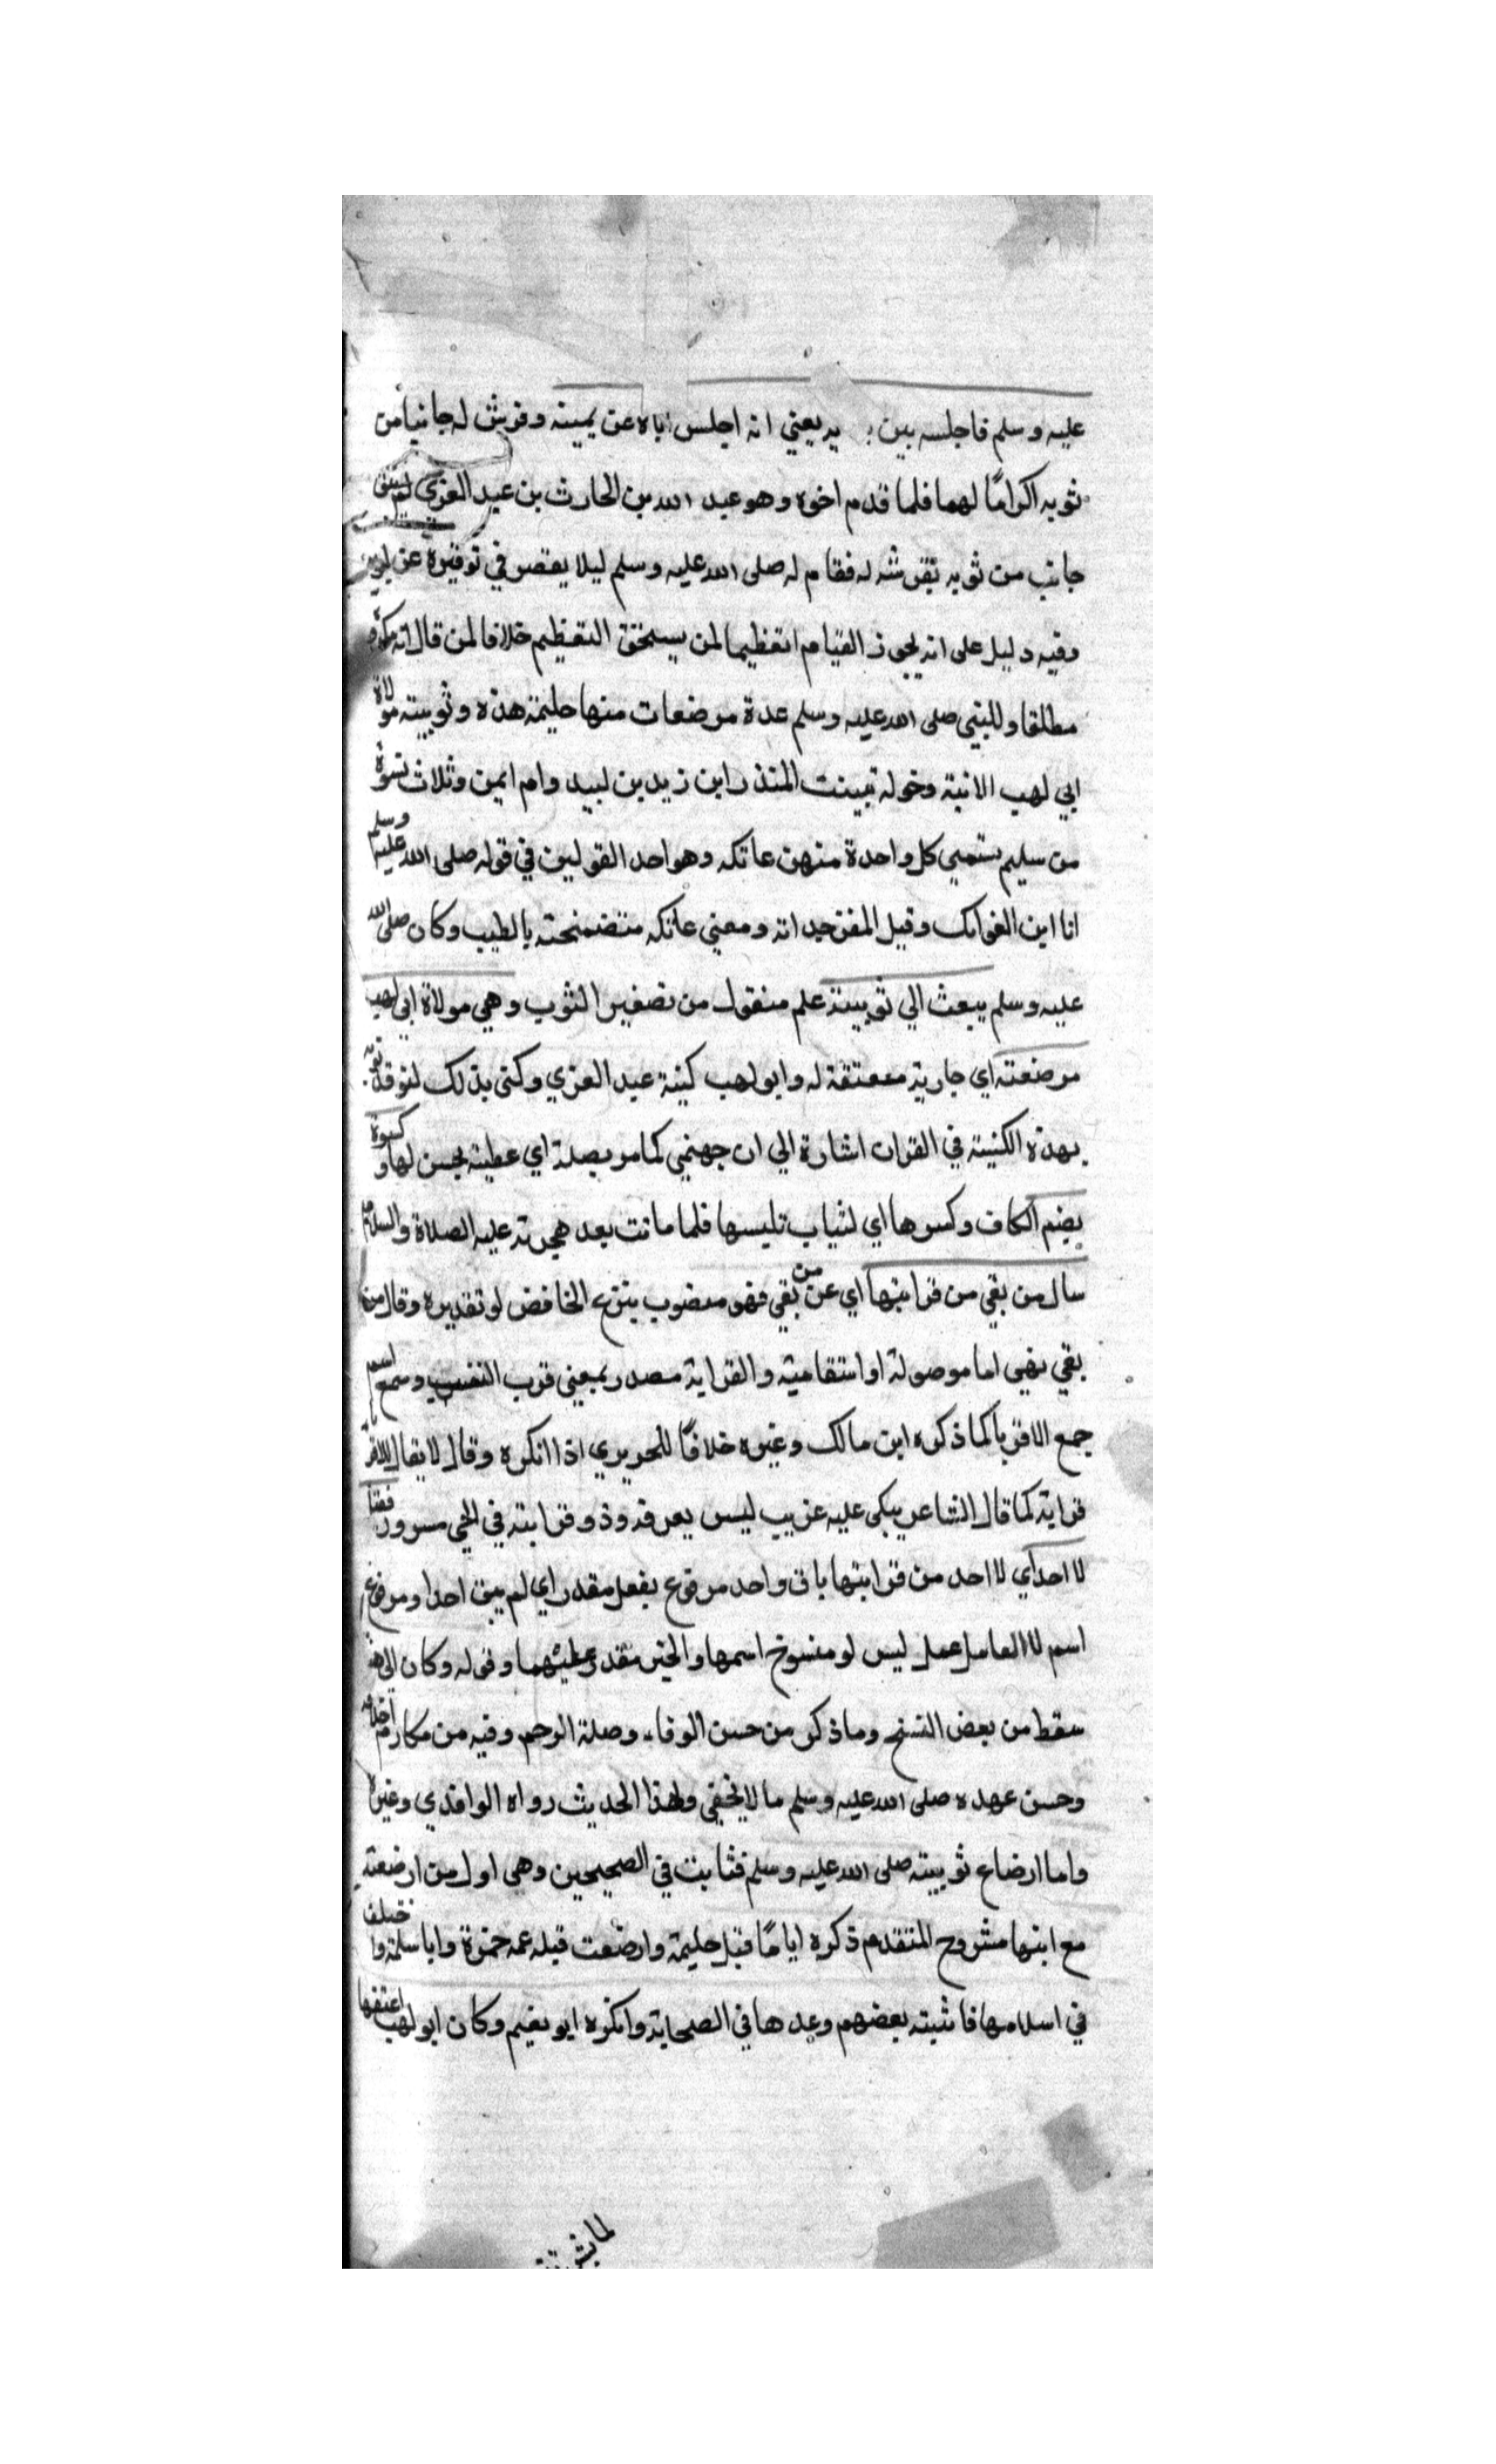 عليه وسلم فاجلسه بين يديه يعني انه اجلس اباه عن يمينه وفرش له جانبا من
ثوبه اكرامًا لهما فلما قدم اخوه وهو عبد الله بن الحارث بن عبد العزي لم يبق
جانب من ثوبه يفرشه له فقام له صلى الله عليه وسلم ليلا يقصر في توقيره عن ابويه
وفيه دليل على انه يجوز القيام تعظيما لمن يستحق التعظيم خلافا لمن قال انه مكروه
مطلقا وللنبي صلى الله عليه وسلم عدة مرضعات منها حليمة هذه وثويبة مولاة
ابي لهب الاتية وخولة بنت المنذر ابن زيد بن لبيد وام ايمن وثلاث نسوة
من سليم يسمي كل واحدة منهن عاتكه وهو احد القولين في قوله صلى الله عليه وسلم
انا ابن العواتك وقيل المفن جداته ومعني عاتكه متضمخة بالطيب وكان صلى الله
عليه وسلم يبعث الي ثويبة علم منقول من تصغير الثوب وهي مولاة ابي لهب
مرضعته اي جارية معتقة له وابو لهب كنية عبد العزي وكني بذلك لتوقد
بهذه الكنية في القران اشارة الي ان جهنمي كما مر بصلة اي عطية يحسن لها وكسوة
بضم الكاف وكسرها اي لثياب تلبسها فلما ماتت بعد هجرته عليه الصلاة والسلام
سال من بقي من قرابتها اي عن من بقي فهو منصوب بنزع الخافض لو تقديره وقال من
بقي فهي اما موصولة او استفامية والقرابة مصدر بمعني قرب النسب وسمع اسم
جمع الاقربا كما ذكره ابن مالك وغيره خلافًا للحريري اذا انكره وقال لا يقال
قرابة كما قال الشاعر يبكي عليه غريب ليس يعرفه وذو قرابته في الحي مسرور فقا
لا احد اي لا احد من قرابتها باق واحد مرفوع بفعل مقدر اي لم يبق احدا ومرفوع
اسم لا العامل عمل ليس لو منسوخ اسمها والخبر مقدر وقوله وكان
سقط من بعض النسخ وما ذكر من حسن الوفاء وصلة الرحم وفيه من مكارم اخلاقه
وحسن عهده صلى الله عليه وسلم ما لا يخفي ولهذا الحديث رواه الواقدي وغيره
واما ارضاع ثويبة صلى الله عليه وسلم فثابت في الصحيحين وهي اول من ارضعته
مع ابنها مشروح المتقدم ذكره ايامًا قبل حليمة وارضعت قبله عمه حمزة وابا سلمة واختلف
في اسلامها فاثبته بعضهم وعدها في الصحابة وانكره ابو نعيم وكان ابو لهب اعتقها